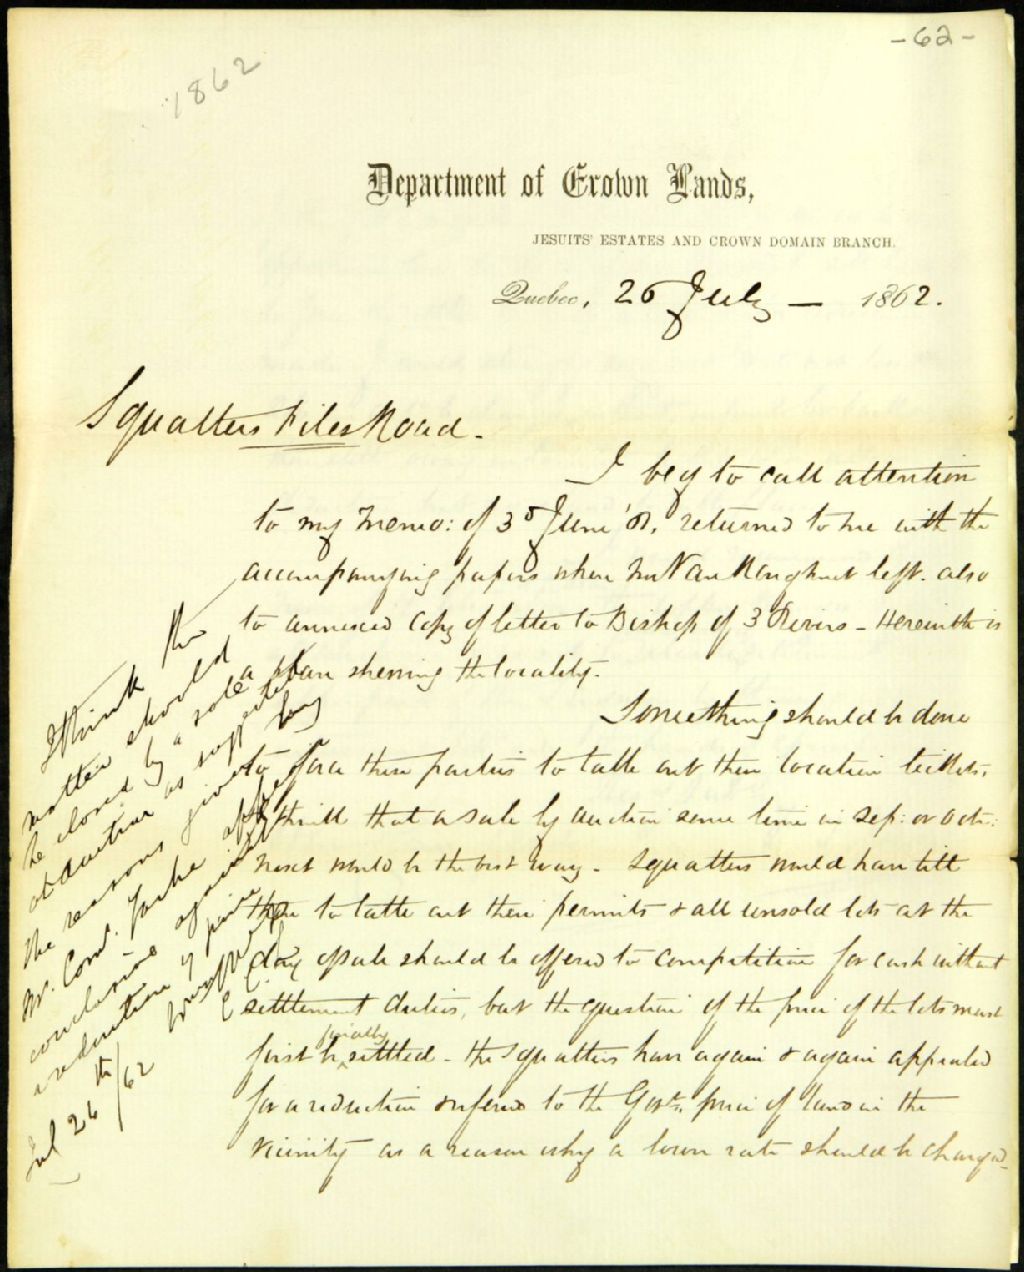 - 62 -
1862
Department of Crown Lands,
JESUITS' ESTATES AND CROWN DOMAIN BRANCH.
Quebec, 26 July — 1862.
Squatters Files Road.
I beg to call attention
to my memo: of 3d June '61, returned to me with the
accompanying papers when Mr VanKoughnet left. also
to annexed copy of letter to Bishop of 3 Rivers - Herewith is
a plan shewing the locality.
Something should be done
to force these parties to take out their location tickets.
I think that a sale by auction some time in Sep: or Octr:
next would be the best way. Squatters would have till
then to take out their permits & all unsold lots at the
day of sale should be offered to competition for cash without
settlement duties, but the question of the price of the lots must
first be finally settled - the Squatters have again & again appealed
for a reduction & refered to the Govt. price of land in the
vicinity as a reason why a lower rate should be charged
I think the
matter should
be closed by a sale
at auction as suggested
the reasons given by
Mr. Comr. appear
conclusive against
a reduction of price
C. C. L.
Jul 26th/62